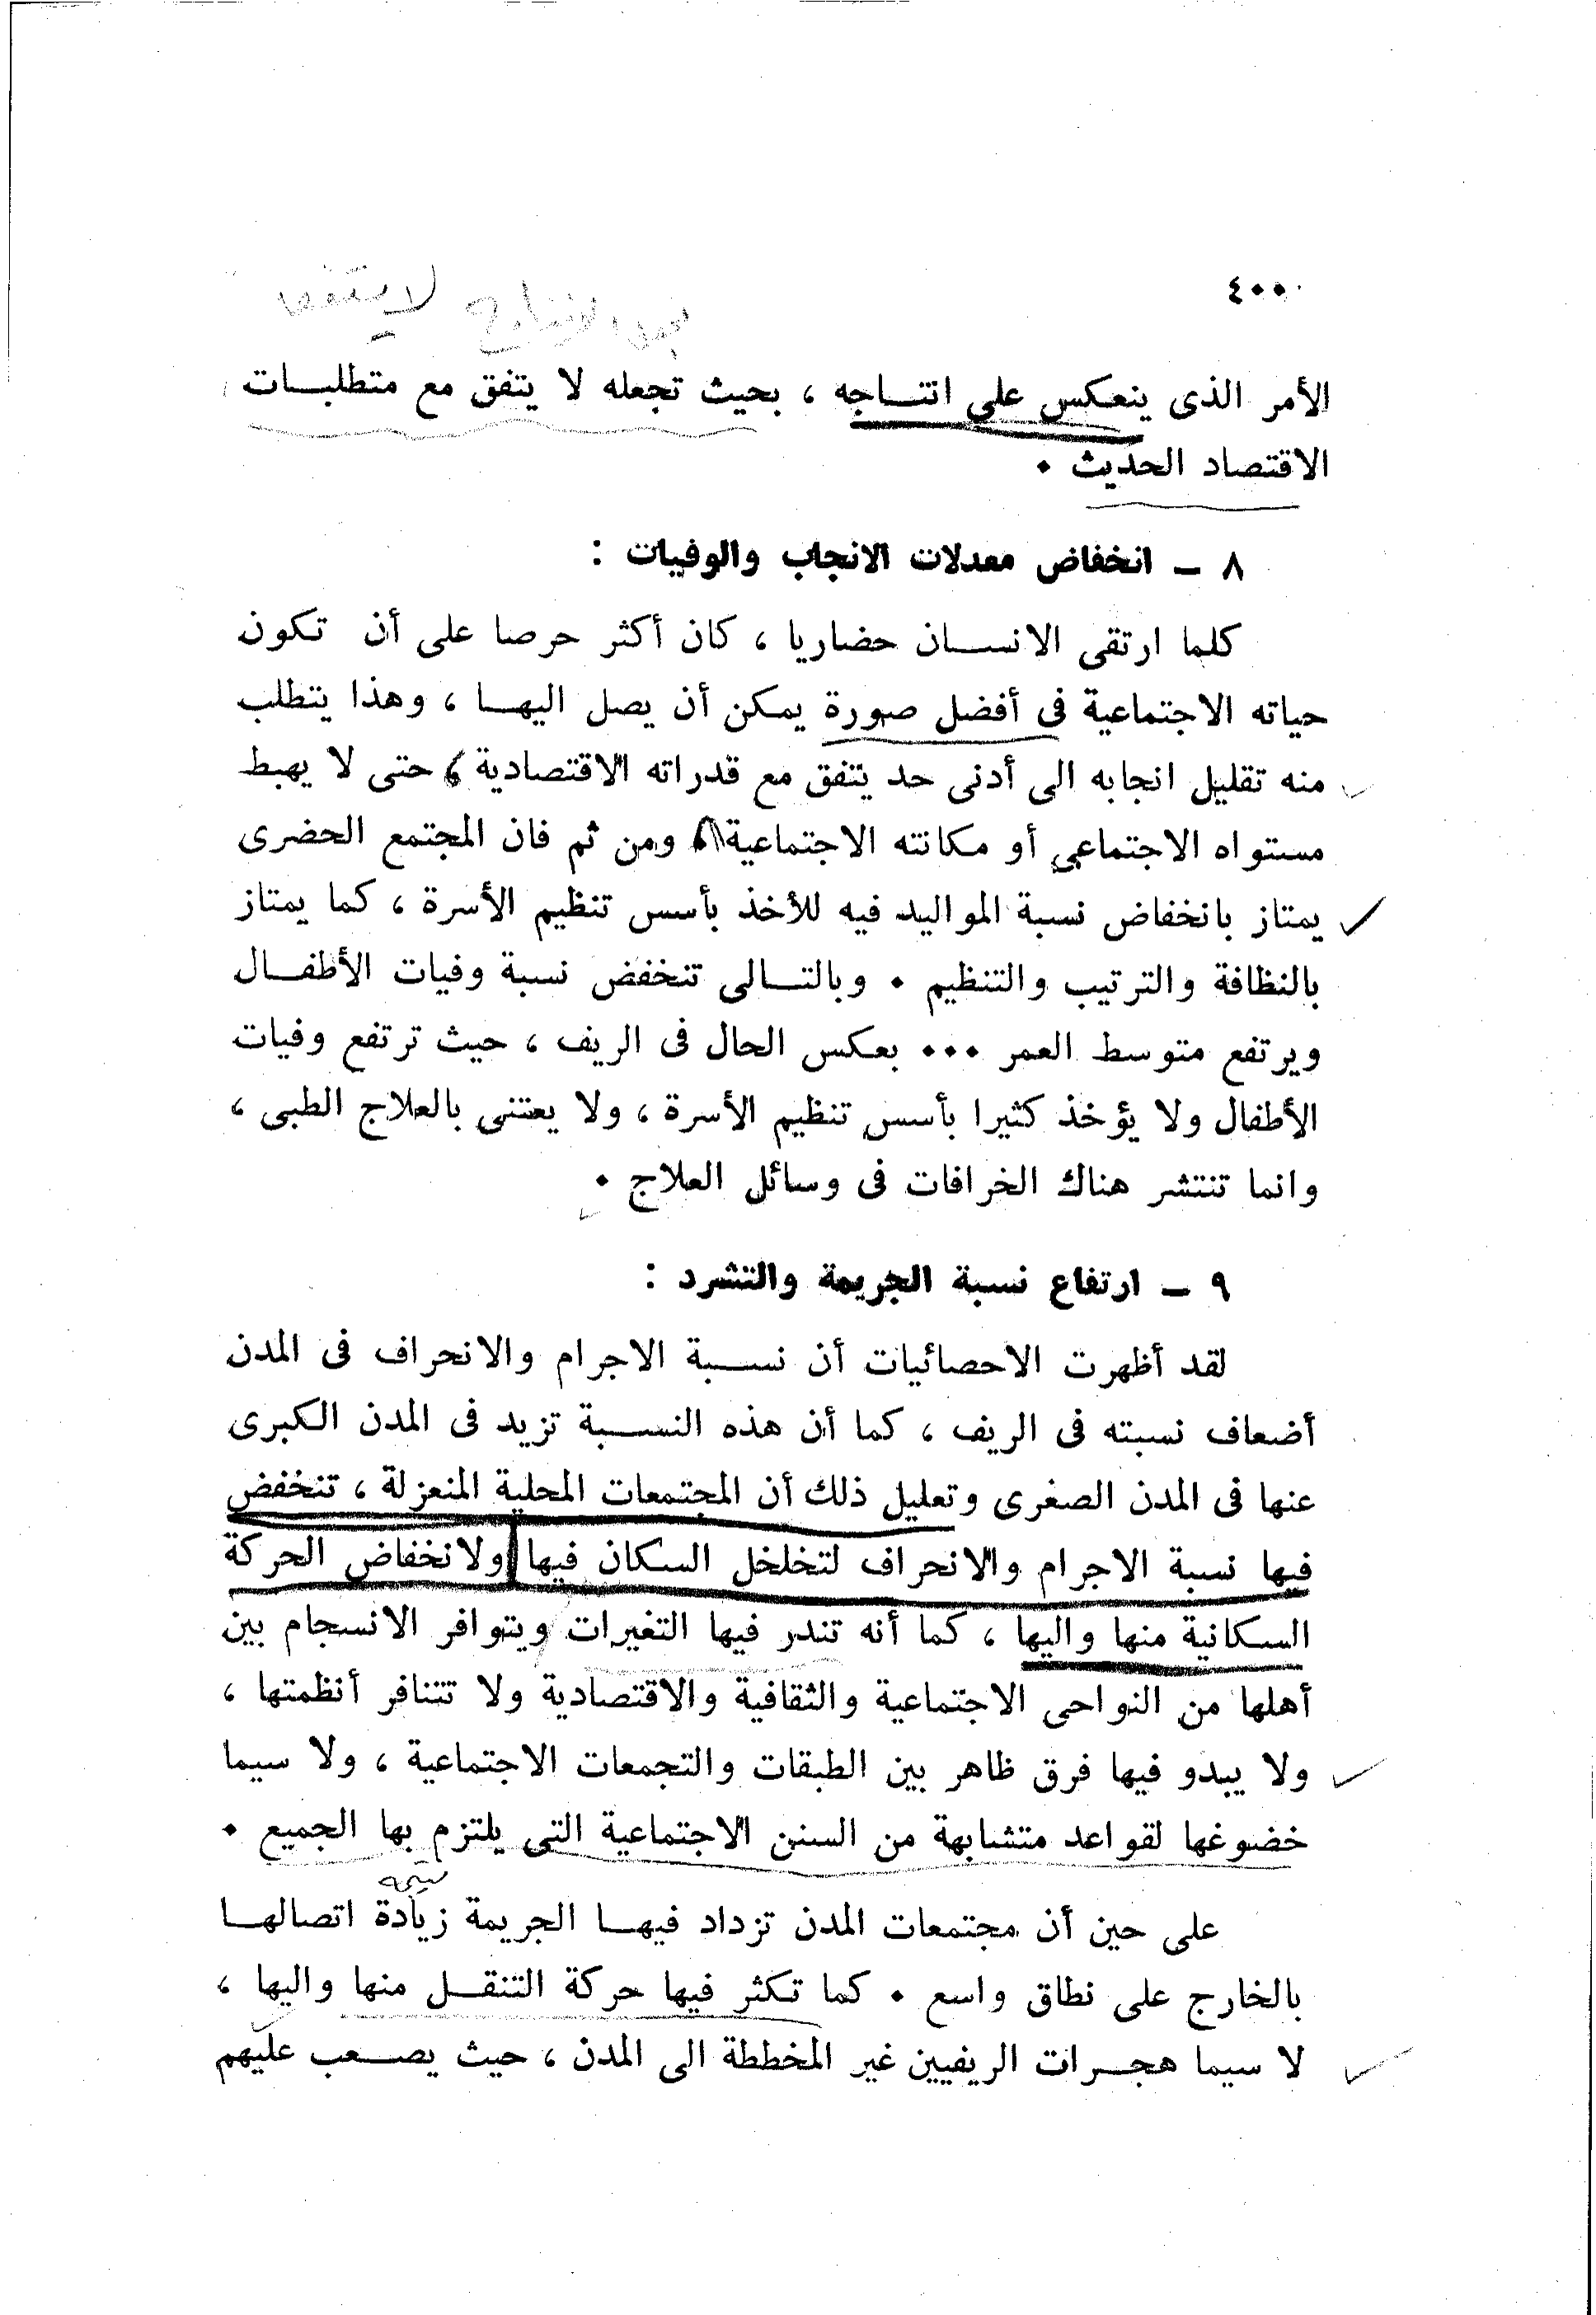 ٤٠٠
الأمر الذى ينعكس على انتـــاجه ، بحيث تجعله لا يتفق مع متطلبـــات
الاقتصاد الحديث ٠
٨ ــ انخفاض معدلات الانجاب والوفيات :
كلما ارتقى الانســـان حضاريا ، كان أكثر حرصا على أن تكون
حياته الاجتماعية فى أفضل صورة يمكن أن يصل اليهـــا ، وهذا يتطلب
منه تقليل انجابه الى أدنى حد يتفق مع قدراته الاقتصادية ، حتى لا يهبط
مستواه الاجتماعى أو مكانته الاجتماعية ، ومن ثم فان المجتمع الحضرى
يمتاز بانخفاض نسبة المواليد فيه للأخذ بأسس تنظيم الأسرة ، كما يمتاز
بالنظافة والترتيب والتنظيم ٠ وبالتـــالى تنخفض نسبة وفيات الأطفـــال
ويرتفع متوسط العمر ٠٠٠ بعكس الحال فى الريف ، حيث ترتفع وفيات
الأطفال ولا يؤخذ كثيرا بأسس تنظيم الأسرة ، ولا يعتنى بالعلاج الطبى ،
وانما تنتشر هناك الخرافات فى وسائل العلاج ٠
٩ ــ ارتفاع نسبة الجريمة والتشرد :
لقد أظهرت الاحصائيات أن نســـبة الاجرام والانحراف فى المدن
أضعاف نسبته فى الريف ، كما أن هذه النســـبة تزيد فى المدن الكبرى
عنها فى المدن الصغرى وتعليل ذلك أن المجتمعات المحلية المنعزلة ، تنخفض
فيها نسبة الاجرام والانحراف لتخلخل السكان فيها ولانخفاض الحركة
السكانية منها واليها ، كما أنه تندر فيها التغيرات ويتوافر الانسجام بين
أهلها من النواحى الاجتماعية والثقافية والاقتصادية ولا تتنافر أنظمتها ،
ولا يبدو فيها فرق ظاهر بين الطبقات والتجمعات الاجتماعية ، ولا سيما
خضوغها لقواعد متشابهة من السنن الاجتماعية التى يلتزم بها الجميع ٠
على حين أن مجتمعات المدن تزداد فيهـــا الجريمة زيادة اتصالهـــا
بالخارج على نطاق واسع ٠ كما تكثر فيها حركة التنقـــل منها واليها ،
لا سيما هجـــرات الريفيين غير المخططة الى المدن ، حيث يصـــعب عليهم